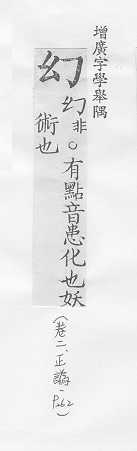 增廣字學舉隅
幻 幻非。有點音患化也妖
術也
(卷二、正譌、P262)